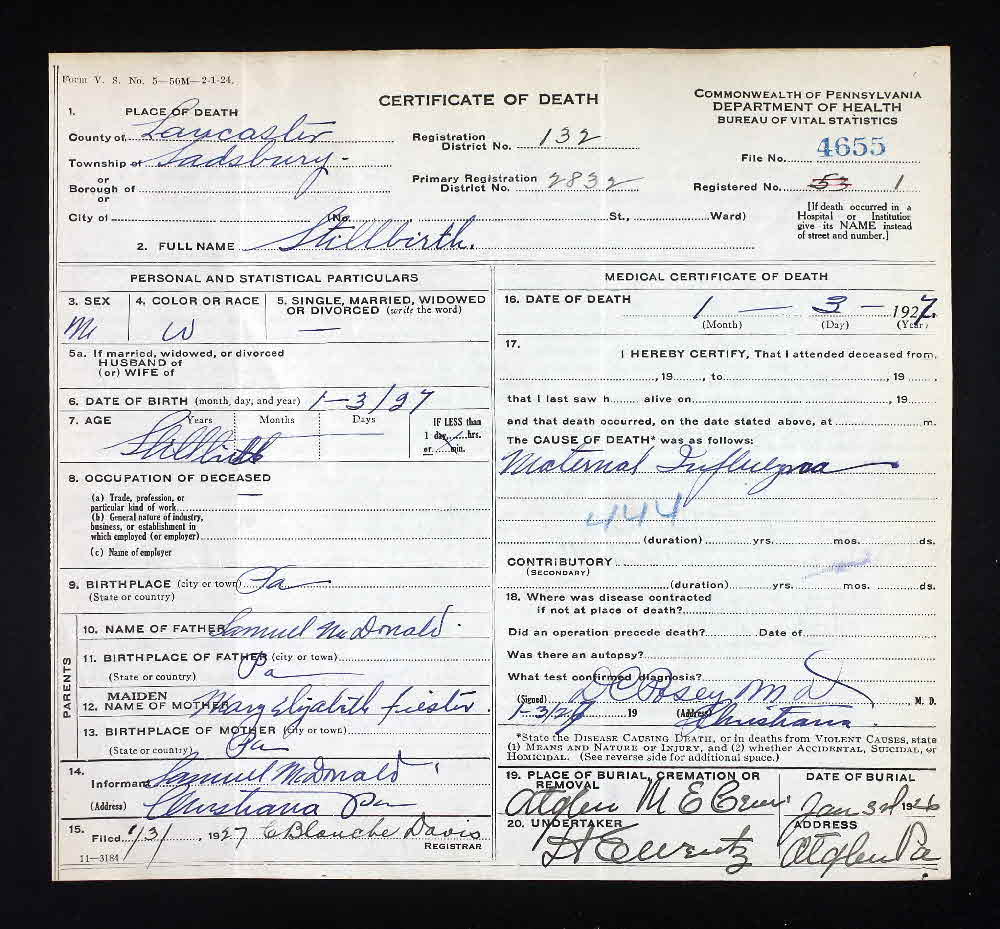 Form V. S. No. 5—50M—2-1-24.
CERTIFICATE OF DEATH
COMMONWEALTH OF PENNSYLVANIA
DEPARTMENT OF HEALTH
BUREAU OF VITAL STATISTICS
1. PLACE OF DEATH
County of Lancaster
Registration District No. 132
File No. 4655
Township of Sadsbury -
or
Borough of
or
Primary Registration District No. 2832
Registered No. 53 1
City of (No. St., Ward)
[If death occurred in a Hospital or Institution give its NAME instead of street and number.]
2. FULL NAME Stillbirth.
PERSONAL AND STATISTICAL PARTICULARS
3. SEX M
4. COLOR OR RACE W
5. SINGLE, MARRIED, WIDOWED OR DIVORCED (write the word) —
5a. If married, widowed, or divorced
HUSBAND of
(or) WIFE of
6. DATE OF BIRTH (month, day, and year) 1-3/27
7. AGE Years Months Days
IF LESS than
1 day, hrs.
or min.
Stillbirth
8. OCCUPATION OF DECEASED
(a) Trade, profession, or
particular kind of work
(b) General nature of industry,
business, or establishment in
which employed (or employer)
(c) Name of employer
9. BIRTHPLACE (city or town) Pa
(State or country)
PARENTS
10. NAME OF FATHER Samuel McDonald
11. BIRTHPLACE OF FATHER (city or town)
(State or country) Pa
12. MAIDEN NAME OF MOTHER Mary Elizabeth Fiester.
13. BIRTHPLACE OF MOTHER (city or town)
(State or country) Pa
14.
Informant Samuel McDonald
(Address) Christiana Pa
15.
Filed 1/3/, 1927 C Blanche Davis
REGISTRAR
11—3184
MEDICAL CERTIFICATE OF DEATH
16. DATE OF DEATH 1 — 3 — 1927.
(Month) (Day) (Year)
17.
I HEREBY CERTIFY, That I attended deceased from,
, 19 , to , 19 .
that I last saw h alive on , 19 .
and that death occurred, on the date stated above, at m.
The CAUSE OF DEATH* was as follows:
Maternal Influenza
444
(duration) yrs. mos. ds.
CONTRIBUTORY
(SECONDARY)
(duration) yrs. mos. ds.
18. Where was disease contracted
if not at place of death?
Did an operation precede death? Date of
Was there an autopsy?
What test confirmed diagnosis?
(Signed) D C Posey M D , M. D.
1-3/27 19 (Address) Christiana.
*State the DISEASE CAUSING DEATH, or in deaths from VIOLENT CAUSES, state
(1) MEANS AND NATURE OF INJURY, and (2) whether ACCIDENTAL, SUICIDAL, or
HOMICIDAL. (See reverse side for additional space.)
19. PLACE OF BURIAL, CREMATION OR REMOVAL
Atglen M E Cem
DATE OF BURIAL
Jan 3d 1926
20. UNDERTAKER
ADDRESS
Atglen Pa